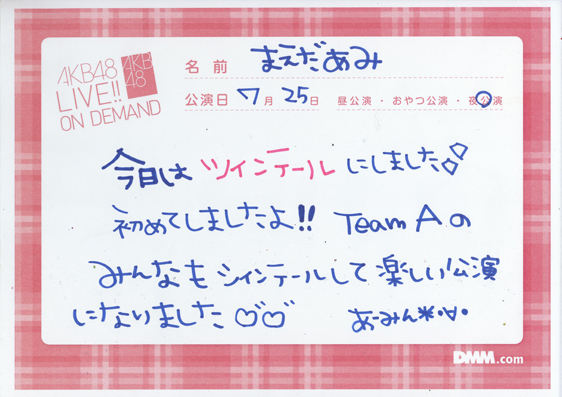 AKB48
LIVE!!
ON DEMAND
AKB
48
名前 まえだあみ
公演日 7月25日 昼公演・おやつ公演・夜公演
今日は ツインテール にしました
初めてしましたよ!! Team Aの
みんなもツインテールして楽しい公演
になりました♡♡ あーみん*・∀・
DMM.com